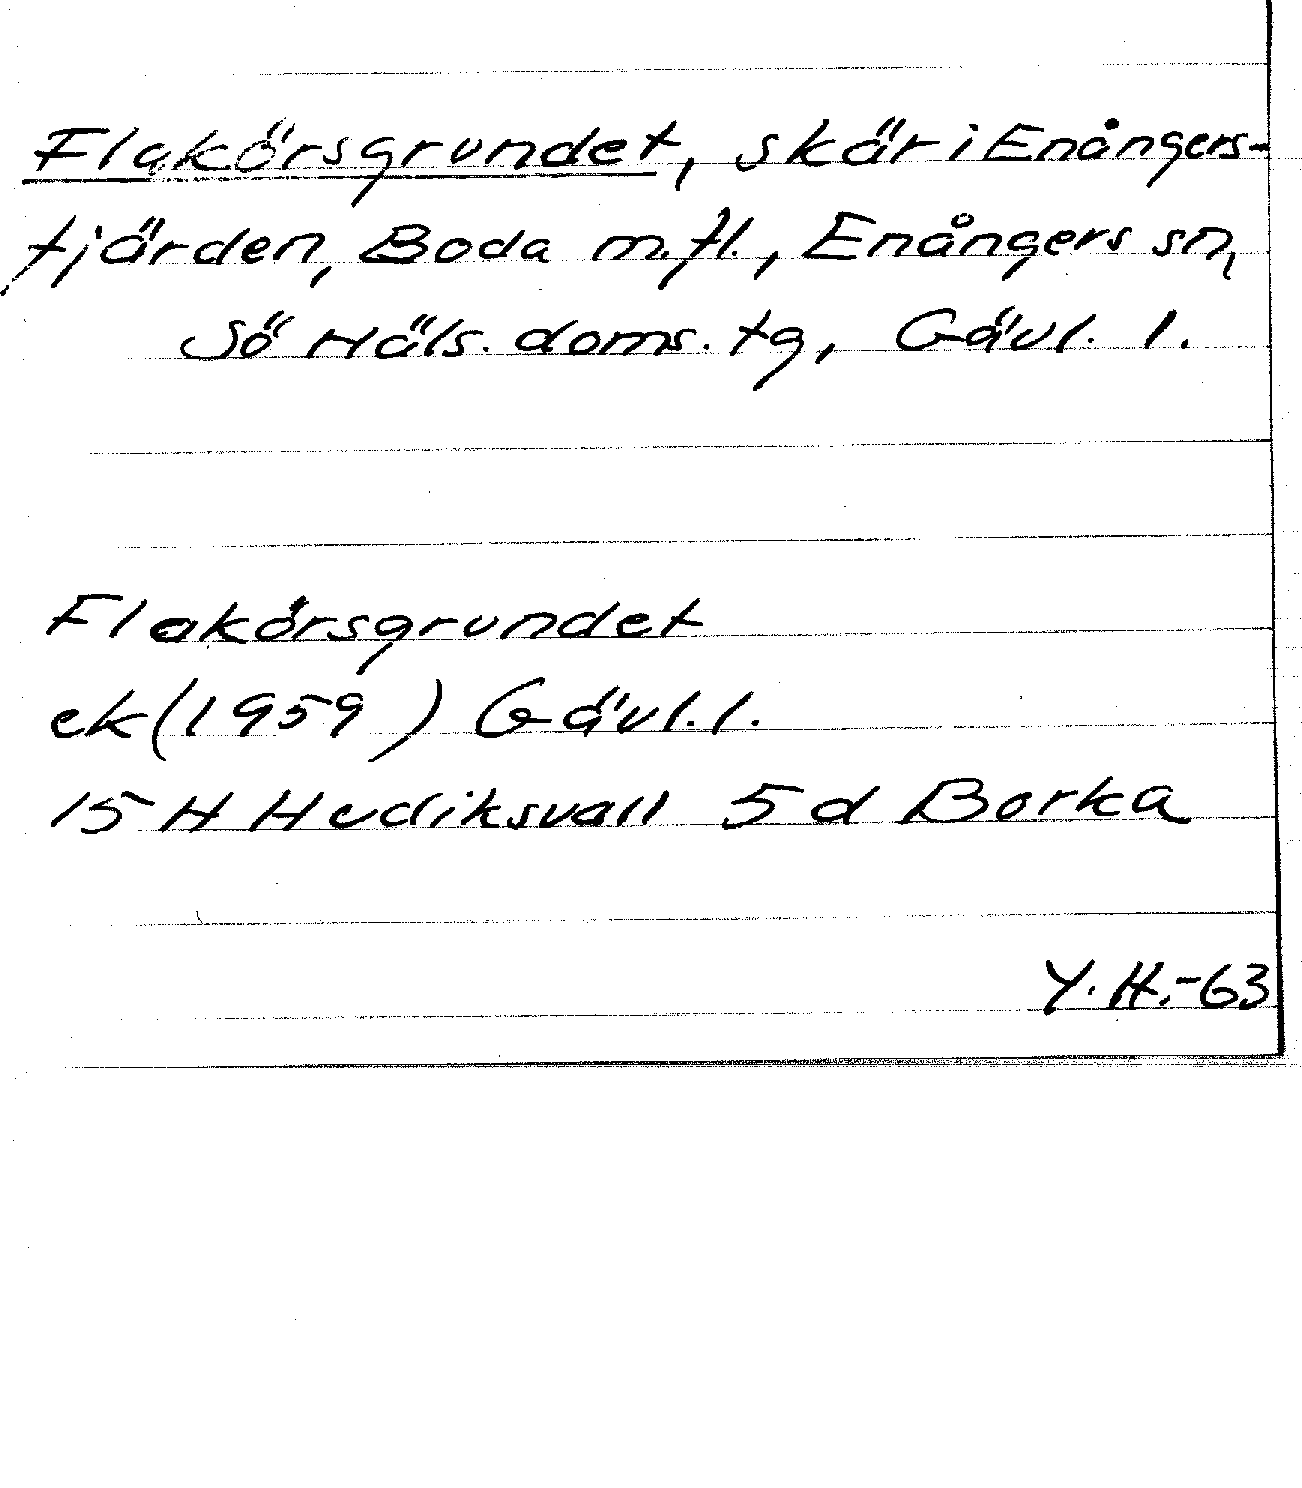 Flakörsgrundet, skär i Enångers-
fjärden, Boda m.fl., Enångers sn,
Sö Häls. doms. tg, Gävl. l.
Flakörsgrundet
ek (1959) Gävl. l.
15 H Hudiksvall 5 d Borka
Y. H. -63